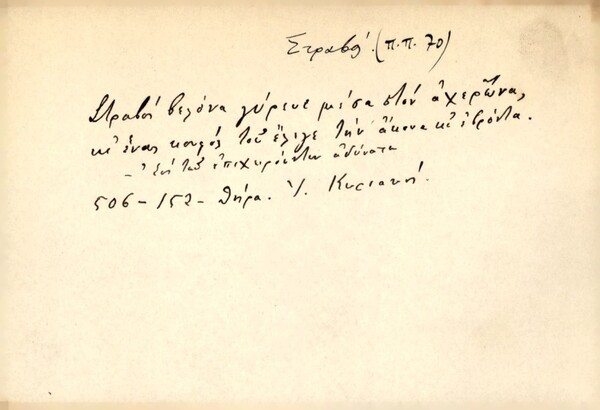 Στραβός. (π.π. 70)
Στραβός βελόνα γύρευε μέσα στόν ἀχερῶνα,
κι' ἕνας κουφός τοὔλεγε τήν ἄκουνα κ' ἐβρόντα.
- Ἐπί τῶν ἐπιχειρούντων ἀδύνατα
506 - 152 - Θήρα. Ἰ. Κυριακή.